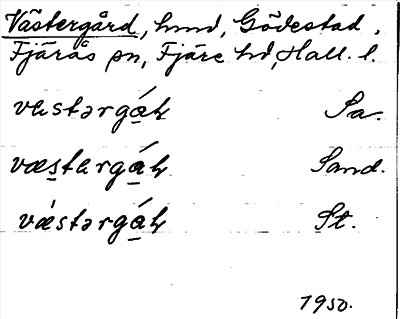 Västergård, hmd, Gödestad,
Fjärås sn, Fjäre hd, Hall. l.
væstərgák Sa.
væstərgák Sand.
væ̀stərgák St.
1950.